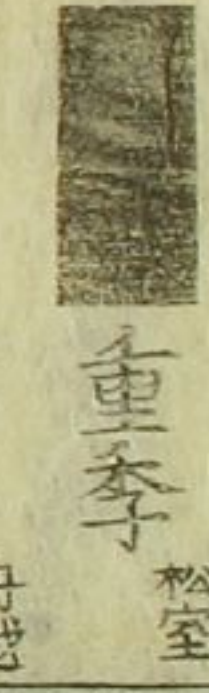 重季
松室